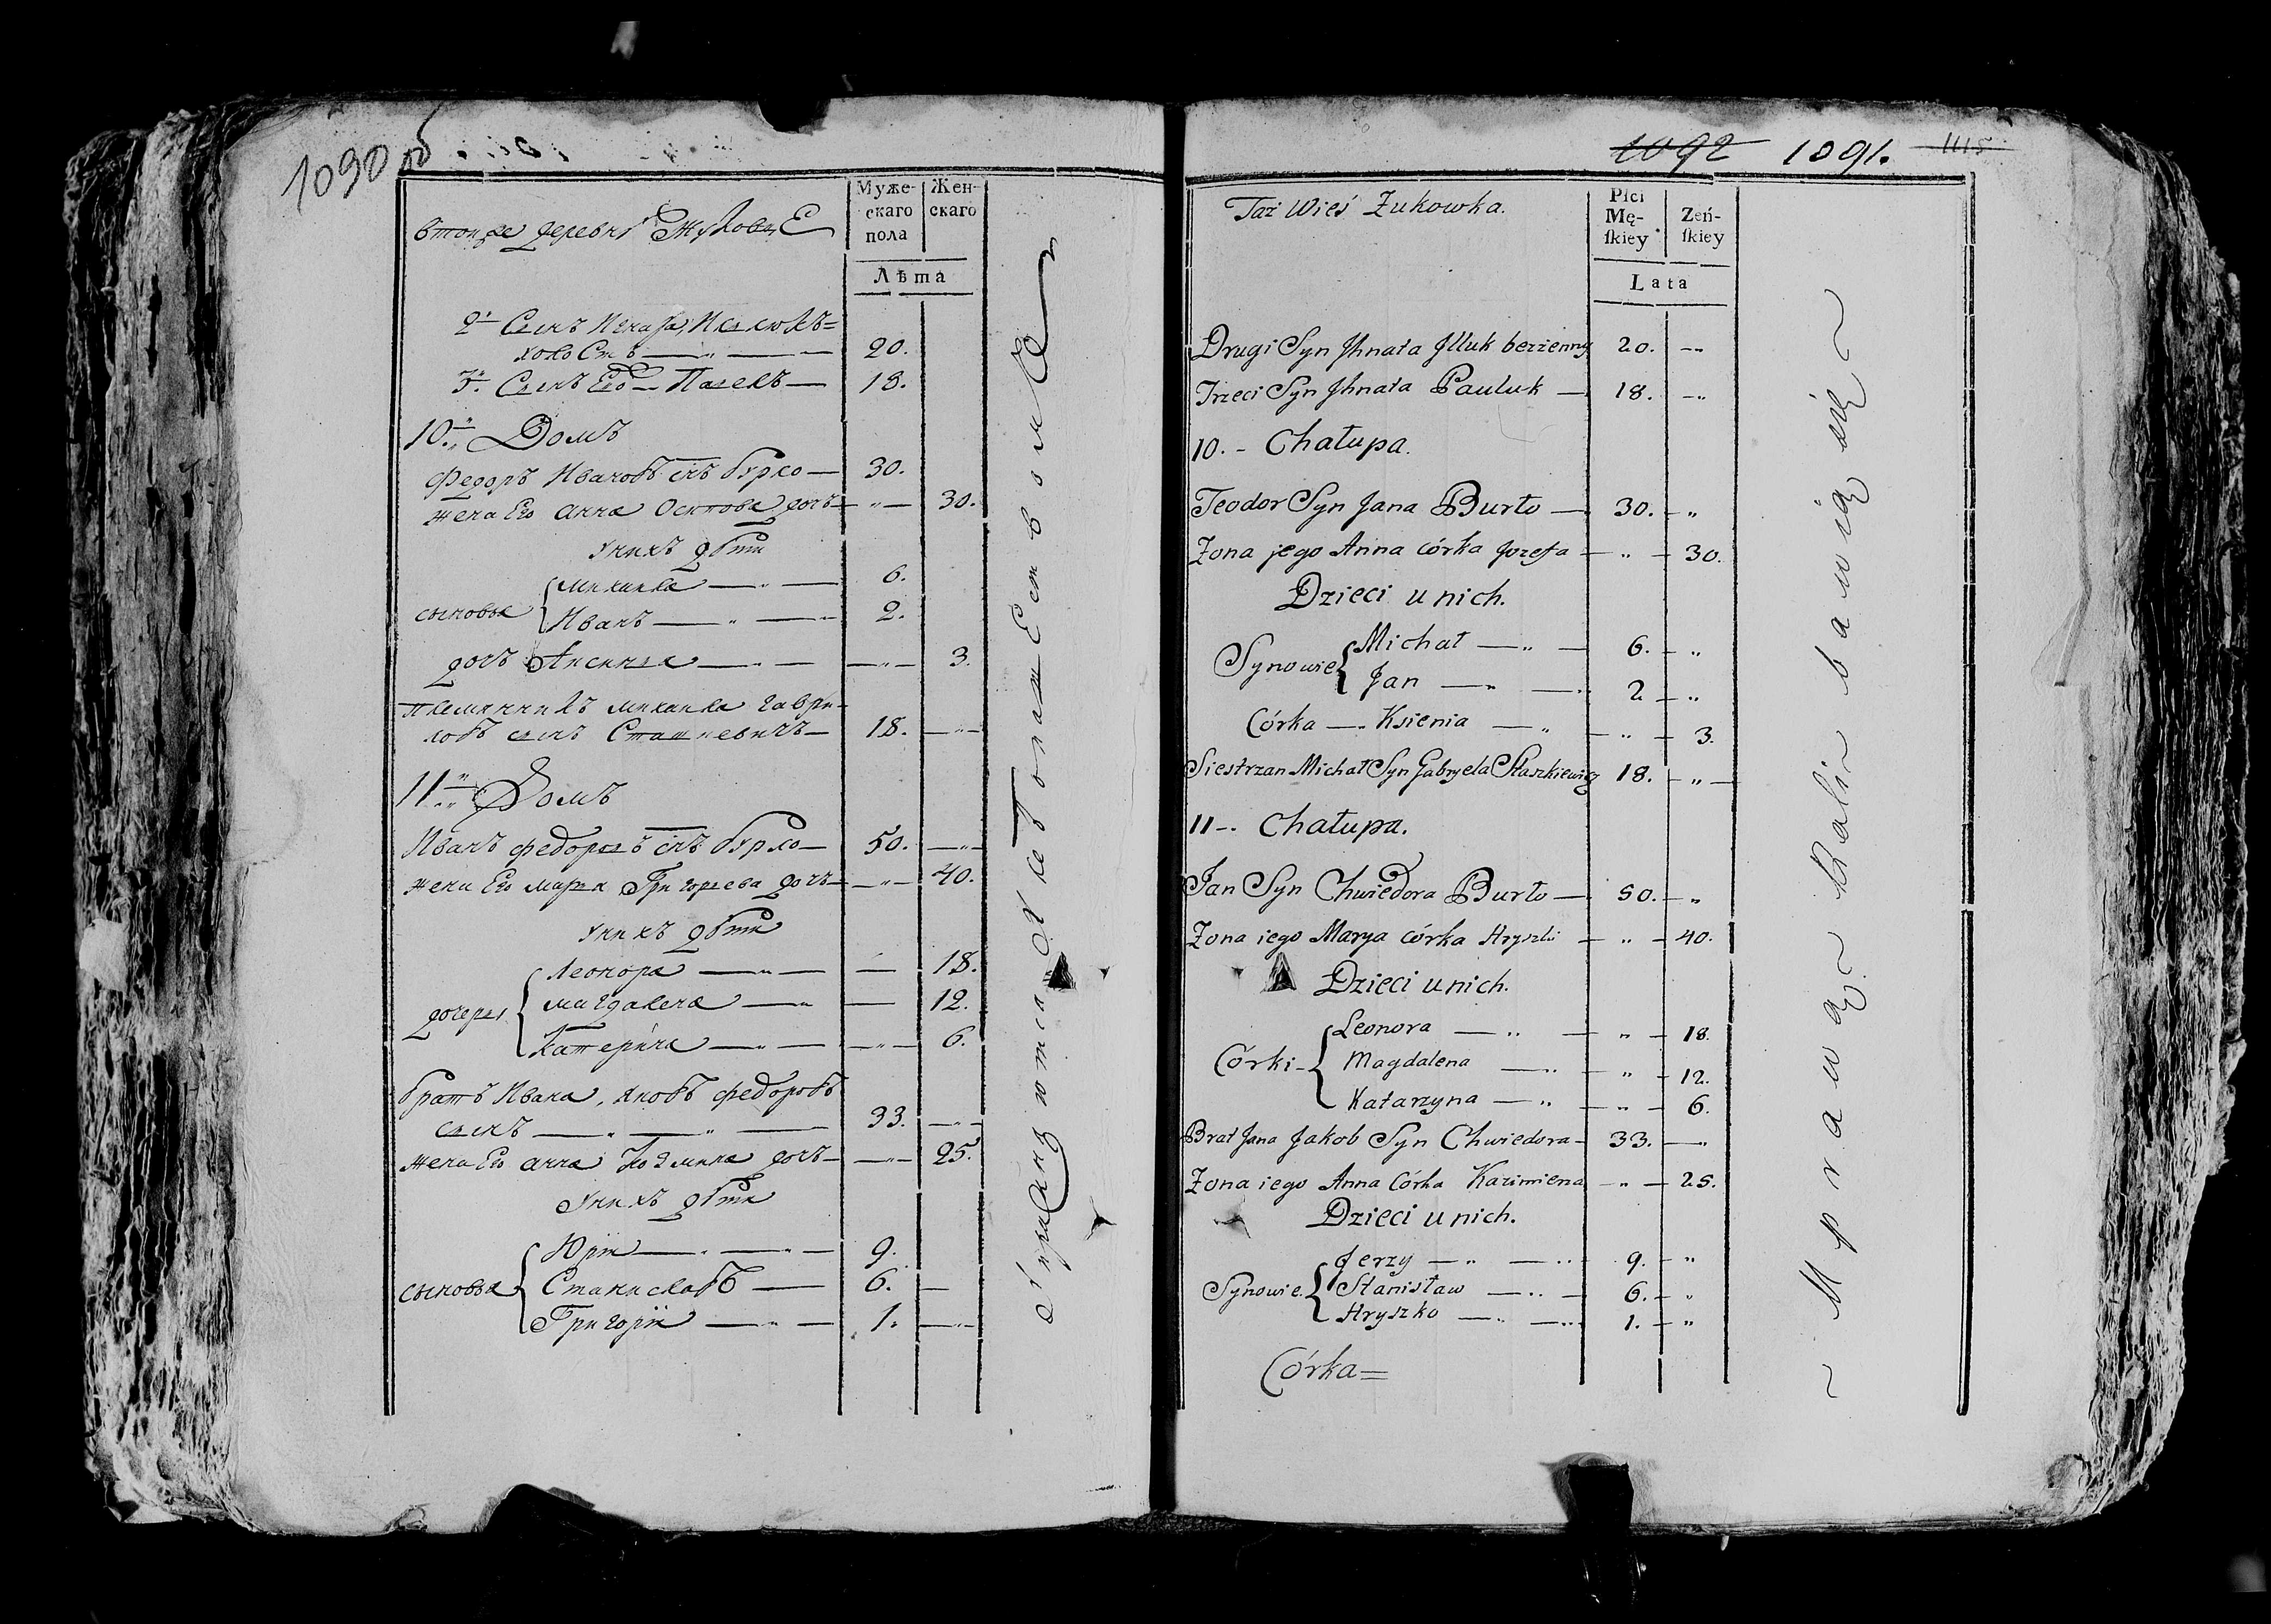 1090 об
Муже-
скаго
пола
Жен-
скаго
Лѣта
втойже деревни Жуковке
2й Сынъ Игната, Илюкъ=
холостъ 20.
3й Сынъ Его Павелъ 18.
10й Домъ
Федоръ Ивановъ снъ Бурло 30.
жена Его Анна Осипова дочь 30.
Унихъ дѣти
сыновья
Михаила 6.
Иванъ 2.
дочь Аксинья 3.
племянникъ Михаила Гаври-
ловъ сынъ Сташкевичъ 18.
11й Домъ
Иванъ Федоровъ снъ Бурло 50.
жена Его Марья Григорьева дочь 40.
Унихъ дѣти
дочери
Леонора 18.
Магдалена 12.
Катерина 6.
братъ Ивана, Яковъ Федоровъ
сынъ 33.
жена Его Анна дочь 25.
Унихъ дѣти
сыновья
Юрій 9.
Станиславъ 6.
Григорій 1.
1092 1091. 1115
Płci
Mę-
skiey
Żeń-
skiey
Lata
Taż Wieś Żukowka.
Drugi Syn Jhnata Jlluk bezżenny 20.
Trzeci Syn Jhnata Pauluk 18.
10. - Chałupa.
Teodor Syn Jana Burło 30.
Żona jego Anna córka Jozefa 30.
Dzieci u nich.
Synowie
Michał 6.
Jan 2
Córka Ksienia 3.
Siestrzan Michał Syn Gabryela Staszkiewicz 18.
11 -. Chałupa.
Jan Syn Chwiedora Burło 50.
Żona iego Marya córka Hryszki 40.
Dzieci u nich.
Córki
Leonora 18.
Magdalena 12.
Katarzyna 6.
Brat Jana Jakob Syn Chwiedora 33.
Żona iego Anna Córka Kazimierza 25.
Dzieci u nich.
Synowie.
Jerzy 9.
Stanisław 6.
Hryszko 1.
Córka=